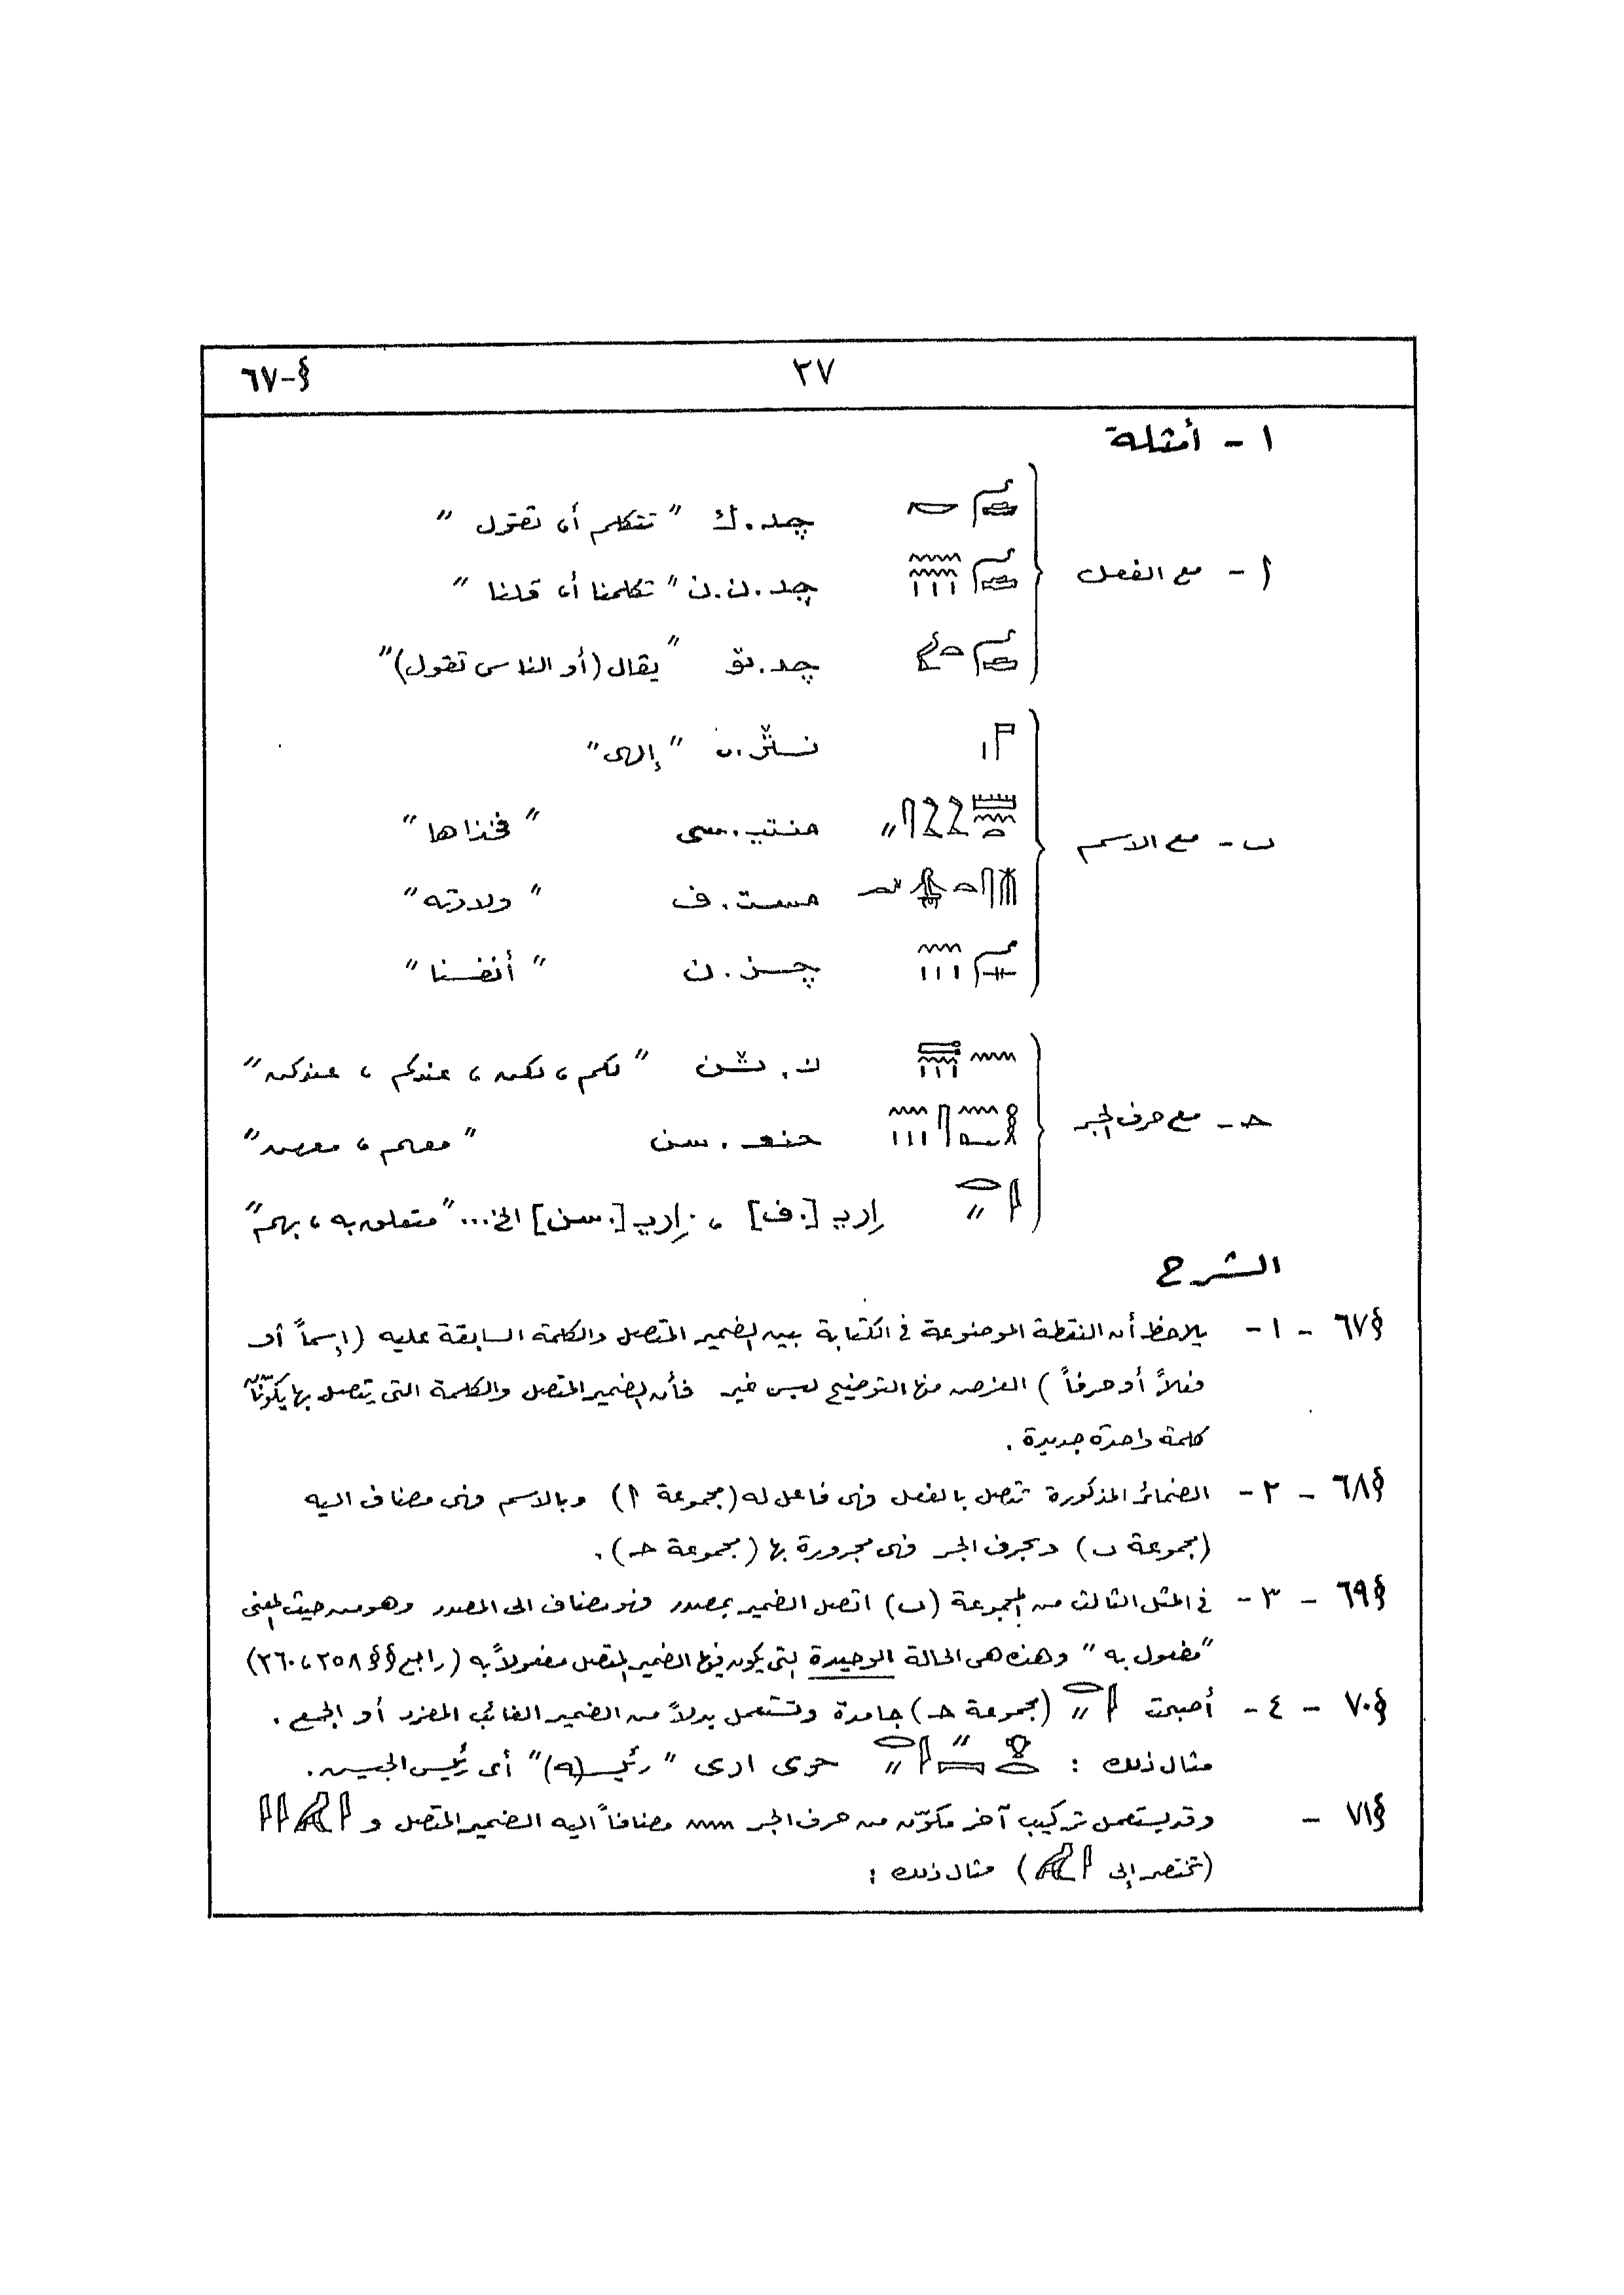 §-٦٧
٣٧
١ - أمثلة
أ - مع الفعل
چد.ك "تتكلم أى تقول"
چد.ن.ن "تكلمنا أى قلنا"
چد.تو "يقال (أو الناس تقول)"
ب - مع الاسم
"إلهى"
منتى.سى "فخذاها"
مست.ف "ولادته"
چس.ن "أنفسنا"
حـ - مع حرف الجر
ن.ثن "لكم، لكن، عندكم، عندكن"
حنع.سن "معهم، معهن"
إرى [.ف]، إرى [.سن] الخ... "متعلق به، بهم"
الشرح
§٦٧ - ١ - يلاحظ أن النقطة الموضوعة فى الكتابة بين الضمير المتصل والكلمة السابقة عليه (إسماً أو
فعلاً أو حرفاً) الغرض منها التوضيح ليس غير فأن الضمير المتصل والكلمة التى يتصل بها يكوّنان
كلمة واحدة جديدة.
§٦٨ - ٢ - الضمائر المذكورة تتصل بالفعل فهى فاعل له (مجموعة أ) وبالاسم فهى مضاف اليه
(مجموعة ب) وبحرف الجر فهى مجرورة بها (مجموعة حـ).
§٦٩ - ٣ - فى المثل الثالث من المجموعة (ب) اتصل الضمير بمصدر فهو مضاف الى المصدر وهو من حيث المعنى
"مفعول به" وهذه هى الحالة الوحيدة التى يكون فيها الضمير المتصل مفعولاً به (راجع §§ ٢٥٨، ٢٦٠)
§٧٠ - ٤ - أصبحت (مجموعة حـ) جامدة وتستعمل بدلاً من الضمير الغائب المفرد أو الجمع.
مثال ذلك : حرى ارى "رئيسـ(ه)" أى رئيس الجيش.
§٧١ - وقد يستعمل تركيب آخر مكوّن من حرف الجر مضافاً اليه الضمير المتصل و
(تختصر إلى ) مثال ذلك :